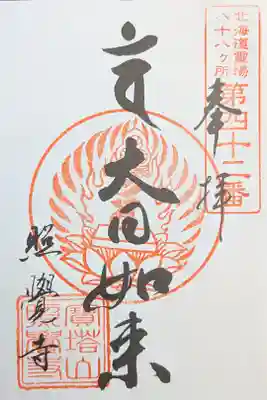 北海道霊場
八十八ヶ所
第四十二番
奉拝
大日如来
照覺寺
寳塔山
照覺寺